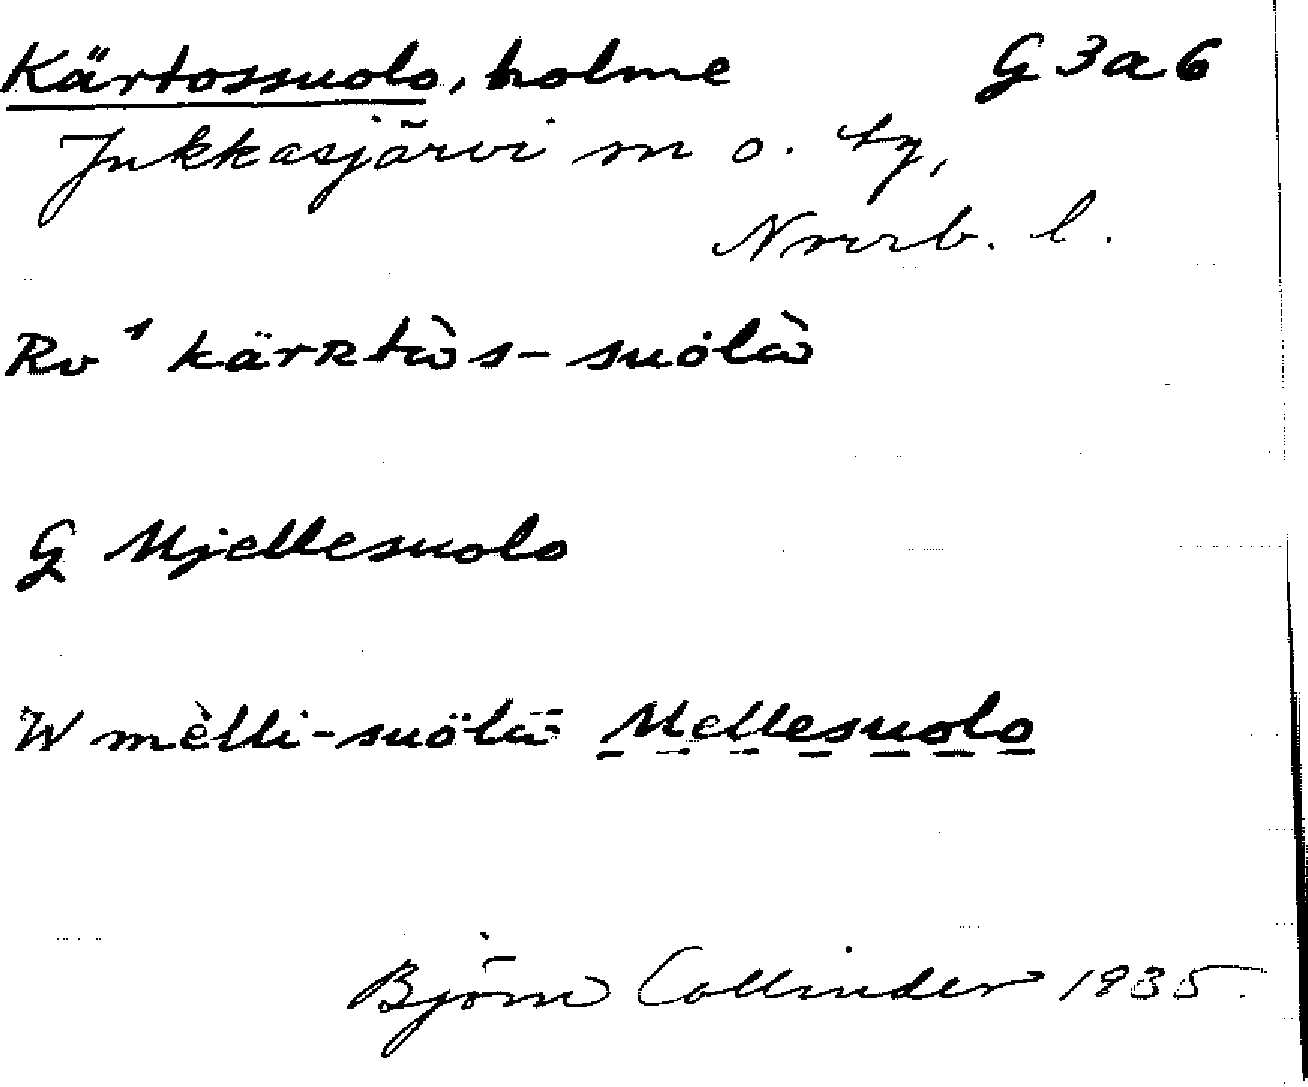 Kärtossuolo, holme G 3 a 6
Jukkasjärvi sn o. tg,
Norrb. l.
Rv¹ kärʀtὼs-suölὼ
G Mjellesuolo
W mèlli-suölω̄ Mellesuolo
Björn Collinder 1935.